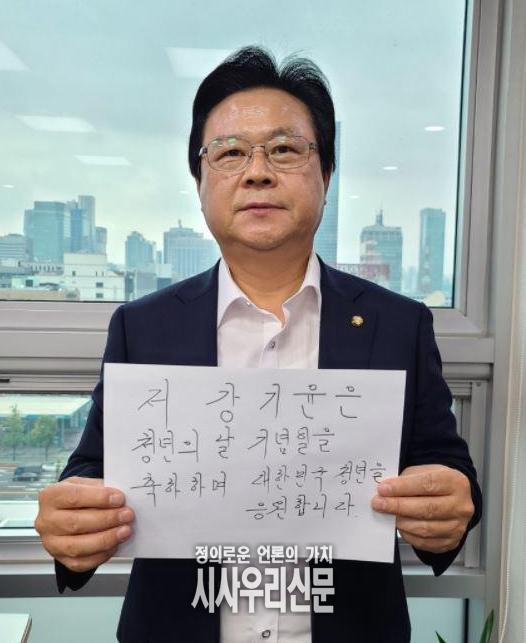 저 강기윤은
청년의 날 기념일을
축하하며 대한민국 청년을
응원합니다.
정의로운 언론의 가치
시사우리신문